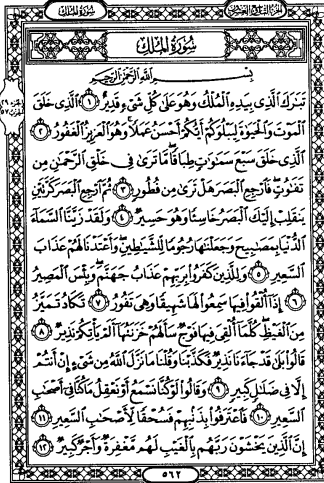 سُورَةُ المُلْكِ
الجزء التاسع والعشرون
سُورَةُ المُلْكِ
بِسْمِ اللَّهِ الرَّحْمَٰنِ الرَّحِيمِ
تَبَٰرَكَ ٱلَّذِى بِيَدِهِ ٱلْمُلْكُ وَهُوَ عَلَىٰ كُلِّ شَىْءٍ قَدِيرٌ ١ ٱلَّذِى خَلَقَ
ٱلْمَوْتَ وَٱلْحَيَوٰةَ لِيَبْلُوَكُمْ أَيُّكُمْ أَحْسَنُ عَمَلًا وَهُوَ ٱلْعَزِيزُ ٱلْغَفُورُ ٢
ٱلَّذِى خَلَقَ سَبْعَ سَمَٰوَٰتٍ طِبَاقًا مَّا تَرَىٰ فِى خَلْقِ ٱلرَّحْمَٰنِ مِن
تَفَٰوُتٍ فَٱرْجِعِ ٱلْبَصَرَ هَلْ تَرَىٰ مِن فُطُورٍ ٣ ثُمَّ ٱرْجِعِ ٱلْبَصَرَ كَرَّتَيْنِ
يَنقَلِبْ إِلَيْكَ ٱلْبَصَرُ خَاسِئًا وَهُوَ حَسِيرٌ ٤ وَلَقَدْ زَيَّنَّا ٱلسَّمَآءَ
ٱلدُّنْيَا بِمَصَٰبِيحَ وَجَعَلْنَٰهَا رُجُومًا لِّلشَّيَٰطِينِ وَأَعْتَدْنَا لَهُمْ عَذَابَ
ٱلسَّعِيرِ ٥ وَلِلَّذِينَ كَفَرُوا۟ بِرَبِّهِمْ عَذَابُ جَهَنَّمَ وَبِئْسَ ٱلْمَصِيرُ
٦ إِذَآ أُلْقُوا۟ فِيهَا سَمِعُوا۟ لَهَا شَهِيقًا وَهِىَ تَفُورُ ٧ تَكَادُ تَمَيَّزُ
مِنَ ٱلْغَيْظِ كُلَّمَآ أُلْقِىَ فِيهَا فَوْجٌ سَأَلَهُمْ خَزَنَتُهَآ أَلَمْ يَأْتِكُمْ نَذِيرٌ ٨
قَالُوا۟ بَلَىٰ قَدْ جَآءَنَا نَذِيرٌ فَكَذَّبْنَا وَقُلْنَا مَا نَزَّلَ ٱللَّهُ مِن شَىْءٍ إِنْ أَنتُمْ
إِلَّا فِى ضَلَٰلٍ كَبِيرٍ ٩ وَقَالُوا۟ لَوْ كُنَّا نَسْمَعُ أَوْ نَعْقِلُ مَا كُنَّا فِىٓ أَصْحَٰبِ
ٱلسَّعِيرِ ١٠ فَٱعْتَرَفُوا۟ بِذَنۢبِهِمْ فَسُحْقًا لِّأَصْحَٰبِ ٱلسَّعِيرِ ١١
إِنَّ ٱلَّذِينَ يَخْشَوْنَ رَبَّهُم بِٱلْغَيْبِ لَهُم مَّغْفِرَةٌ وَأَجْرٌ كَبِيرٌ ١٢
٥٦٢